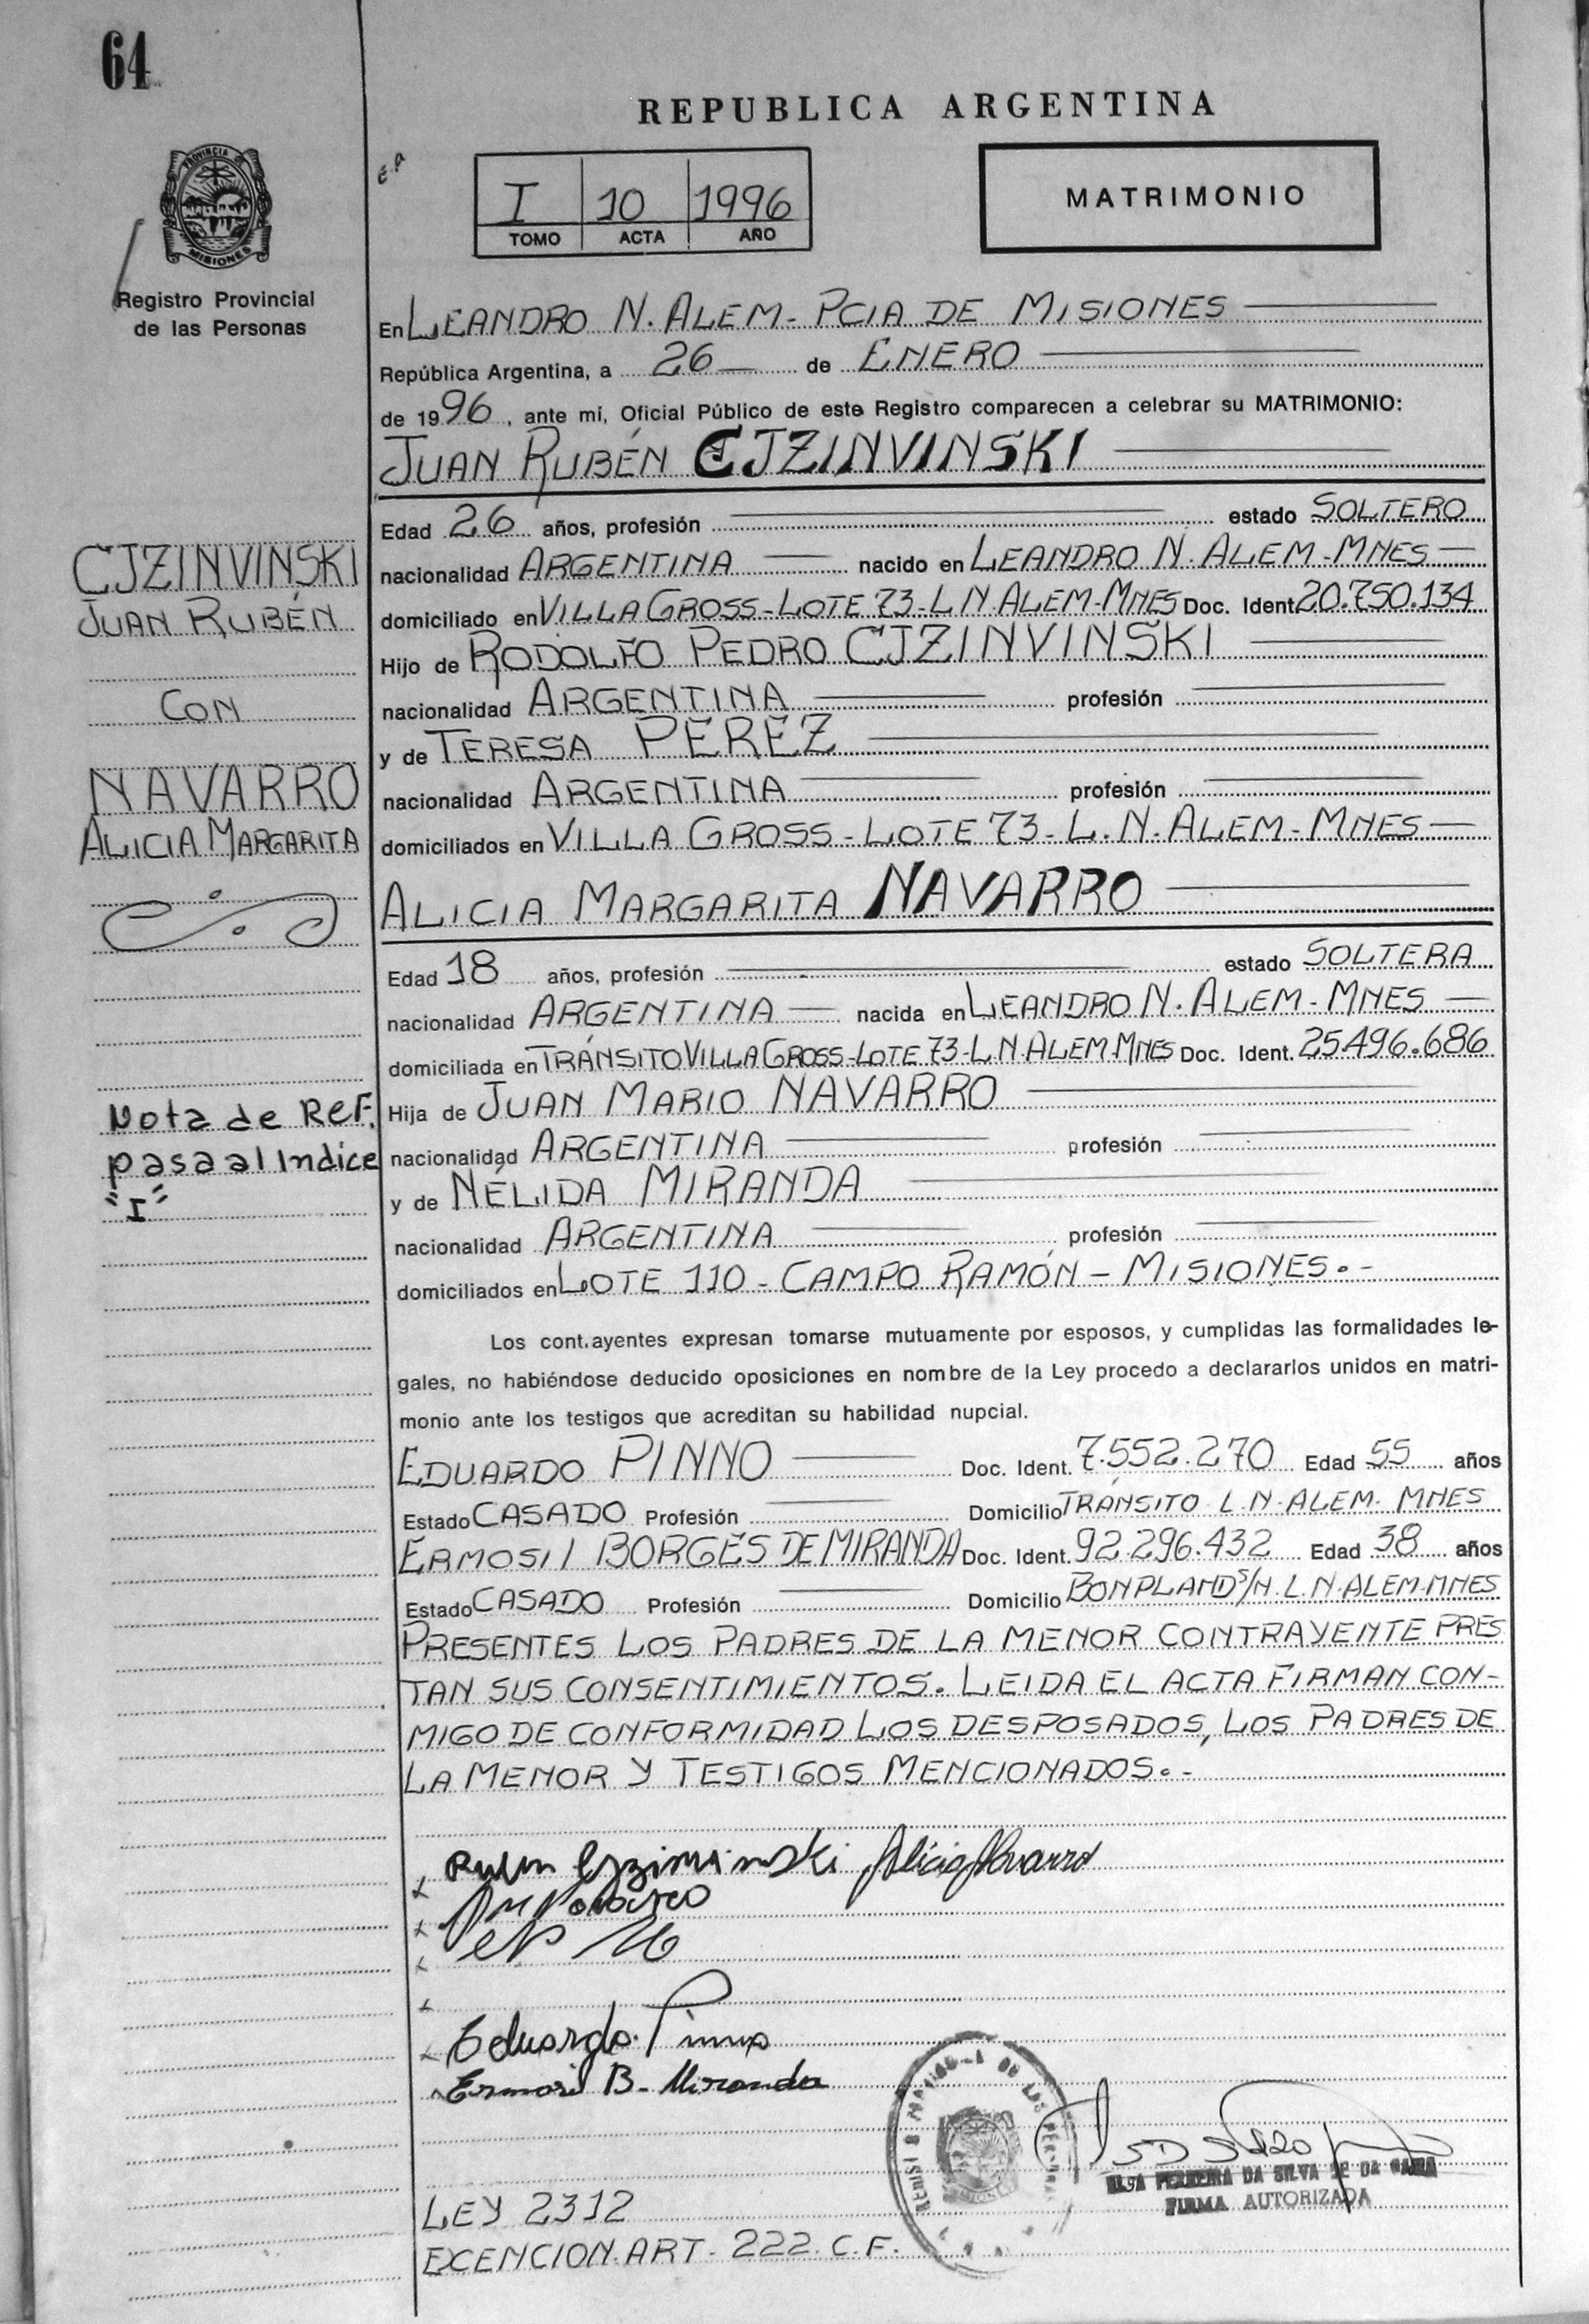 64
REPUBLICA ARGENTINA
PROVINCIA DE
MISIONES
I 10 1996
TOMO ACTA AÑO
MATRIMONIO
Registro Provincial
de las Personas
En LEANDRO N. ALEM - PCIA DE MISIONES
República Argentina, a 26 de ENERO
de 1996, ante mí, Oficial Público de este Registro comparecen a celebrar su MATRIMONIO:
JUAN RUBÉN CJZINVINSKI
Edad 26 años, profesión estado SOLTERO
CJZINVINSKI
nacionalidad ARGENTINA nacido en LEANDRO N. ALEM - MNES
JUAN RUBÉN
domiciliado en VILLA GROSS - LOTE 73 - L N. ALEM - MNES Doc. Ident. 20.750.134
Hijo de RODOLFO PEDRO CJZINVINSKI
CON
nacionalidad ARGENTINA profesión
y de TERESA PEREZ
NAVARRO
nacionalidad ARGENTINA profesión
ALICIA MARGARITA
domiciliados en VILLA GROSS - LOTE 73 - L. N. ALEM - MNES
ALICIA MARGARITA NAVARRO
Edad 18 años, profesión estado SOLTERA
nacionalidad ARGENTINA nacida en LEANDRO N. ALEM - MNES
domiciliada en TRÁNSITO VILLA GROSS - LOTE 73 - L. N. ALEM - MNES Doc. Ident. 25.496.686
Nota de REF.
Hija de JUAN MARIO NAVARRO
pasa al Indice
nacionalidad ARGENTINA profesión
"I"
y de NÉLIDA MIRANDA
nacionalidad ARGENTINA profesión
domiciliados en LOTE 110 - CAMPO RAMÓN - MISIONES. -
Los cont.ayentes expresan tomarse mutuamente por esposos, y cumplidas las formalidades le-
gales, no habiéndose deducido oposiciones en nombre de la Ley procedo a declararlos unidos en matri-
monio ante los testigos que acreditan su habilidad nupcial.
EDUARDO PINNO Doc. Ident. 7.552.270 Edad 55 años
Estado CASADO Profesión Domicilio TRÁNSITO L. N. ALEM. MNES
ERMOSI BORGES DE MIRANDA Doc. Ident. 92.296.432 Edad 38 años
Estado CASADO Profesión Domicilio BONPLAND S/N. L. N. ALEM-MNES
PRESENTES LOS PADRES DE LA MENOR CONTRAYENTE PRES
TAN SUS CONSENTIMIENTOS. LEIDA EL ACTA FIRMAN CON-
MIGO DE CONFORMIDAD LOS DESPOSADOS, LOS PADRES DE
LA MENOR Y TESTIGOS MENCIONADOS. -
Alicia Navarro
Eduardo Pinno
Ermosi B. Miranda
FERREIRA DA SILVA DE DA
FIRMA AUTORIZADA
LEY 2312
EXENCION ART. 222. C.F.